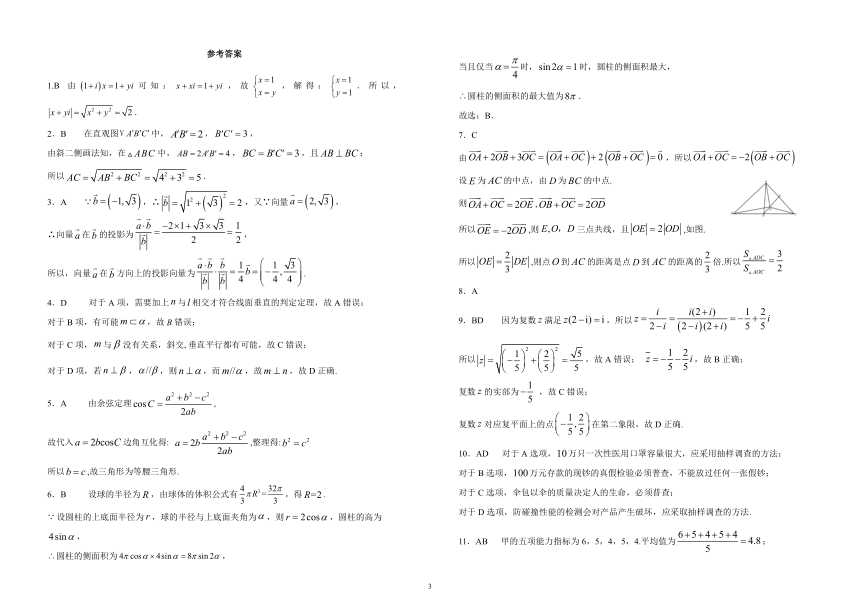 参考答案
1.B 由 (1+i)x=1+yi 可知：x+xi=1+yi，故 {x=1 x=y，解得：{x=1 y=1. 所以，
|x+yi|=√(x²+y²)=√2.
2．B 在直观图V A′B′C′中，A′B′=2，B′C′=3，
由斜二侧画法知，在△ABC中，AB=2A′B′=4，BC=B′C′=3，且AB⊥BC；
所以AC=√(AB²+BC²)=√(4²+3²)=5.
3．A ∵b=(-1,√3)，∴|b|=√(1²+(√3)²)=2，又∵向量a=(2,√3)，
∴向量a在b的投影为 a·b/|b|=(-2×1+√3×√3)/2=1/2，
所以，向量a在b方向上的投影向量为 a·b/|b|·b/|b|=1/4 b=(-1/4,√3/4).
4．D 对于A项，需要加上n与l相交才符合线面垂直的判定定理，故A错误；
对于B项，有可能m⊂α，故B错误；
对于C项，m与β没有关系，斜交,垂直平行都有可能，故C错误；
对于D项，若n⊥β，α//β，则n⊥α，而m//α，故m⊥n，故D正确.
5．A 由余弦定理cosC=(a²+b²-c²)/2ab，
故代入a=2bcosC边角互化得: a=2b(a²+b²-c²)/2ab,整理得:b²=c²
所以b=c,故三角形为等腰三角形.
6．B 设球的半径为R，由球体的体积公式有4/3πR³=32π/3，得R=2.
∵设圆柱的上底面半径为r，球的半径与上底面夹角为α，则r=2cosα，圆柱的高为
4sinα，
∴圆柱的侧面积为4πcosα×4sinα=8πsin2α，
当且仅当α=π/4时，sin2α=1时，圆柱的侧面积最大，
∴圆柱的侧面积的最大值为8π.
故选：B.
7．C
由OA+2OB+3OC=(OA+OC)+2(OB+OC)=0，所以OA+OC=-2(OB+OC)
设E为AC的中点，由D为BC的中点.
则OA+OC=2OE,OB+OC=2OD
所以OE=-2OD,则E,O，D三点共线，且|OE|=2|OD|,如图.
所以|OE|=2/3|DE|,则点O到AC的距离是点D到AC的距离的2/3倍.所以S△ADC/S△AOC=3/2
8．A
9．BD 因为复数z满足z(2-i)=i，所以z=i/(2-i)=i(2+i)/(2-i)(2+i)=-1/5+2/5i
所以|z|=√((-1/5)²+(2/5)²)=√5/5，故A错误； z=-1/5-2/5i，故B正确；
复数z的实部为-1/5，故C错误；
复数z对应复平面上的点(-1/5,2/5)在第二象限，故D正确.
10．AD 对于A选项，10万只一次性医用口罩容量很大，应采用抽样调查的方法；
对于B选项，100万元存款的现钞的真假检验必须普查，不能放过任何一张假钞；
对于C选项，伞包以伞的质量决定人的生命，必须普查；
对于D选项，防碰撞性能的检测会对产品产生破坏，应采取抽样调查的方法.
11．AB 甲的五项能力指标为6，5，4，5，4.平均值为(6+5+4+5+4)/5=4.8；
3